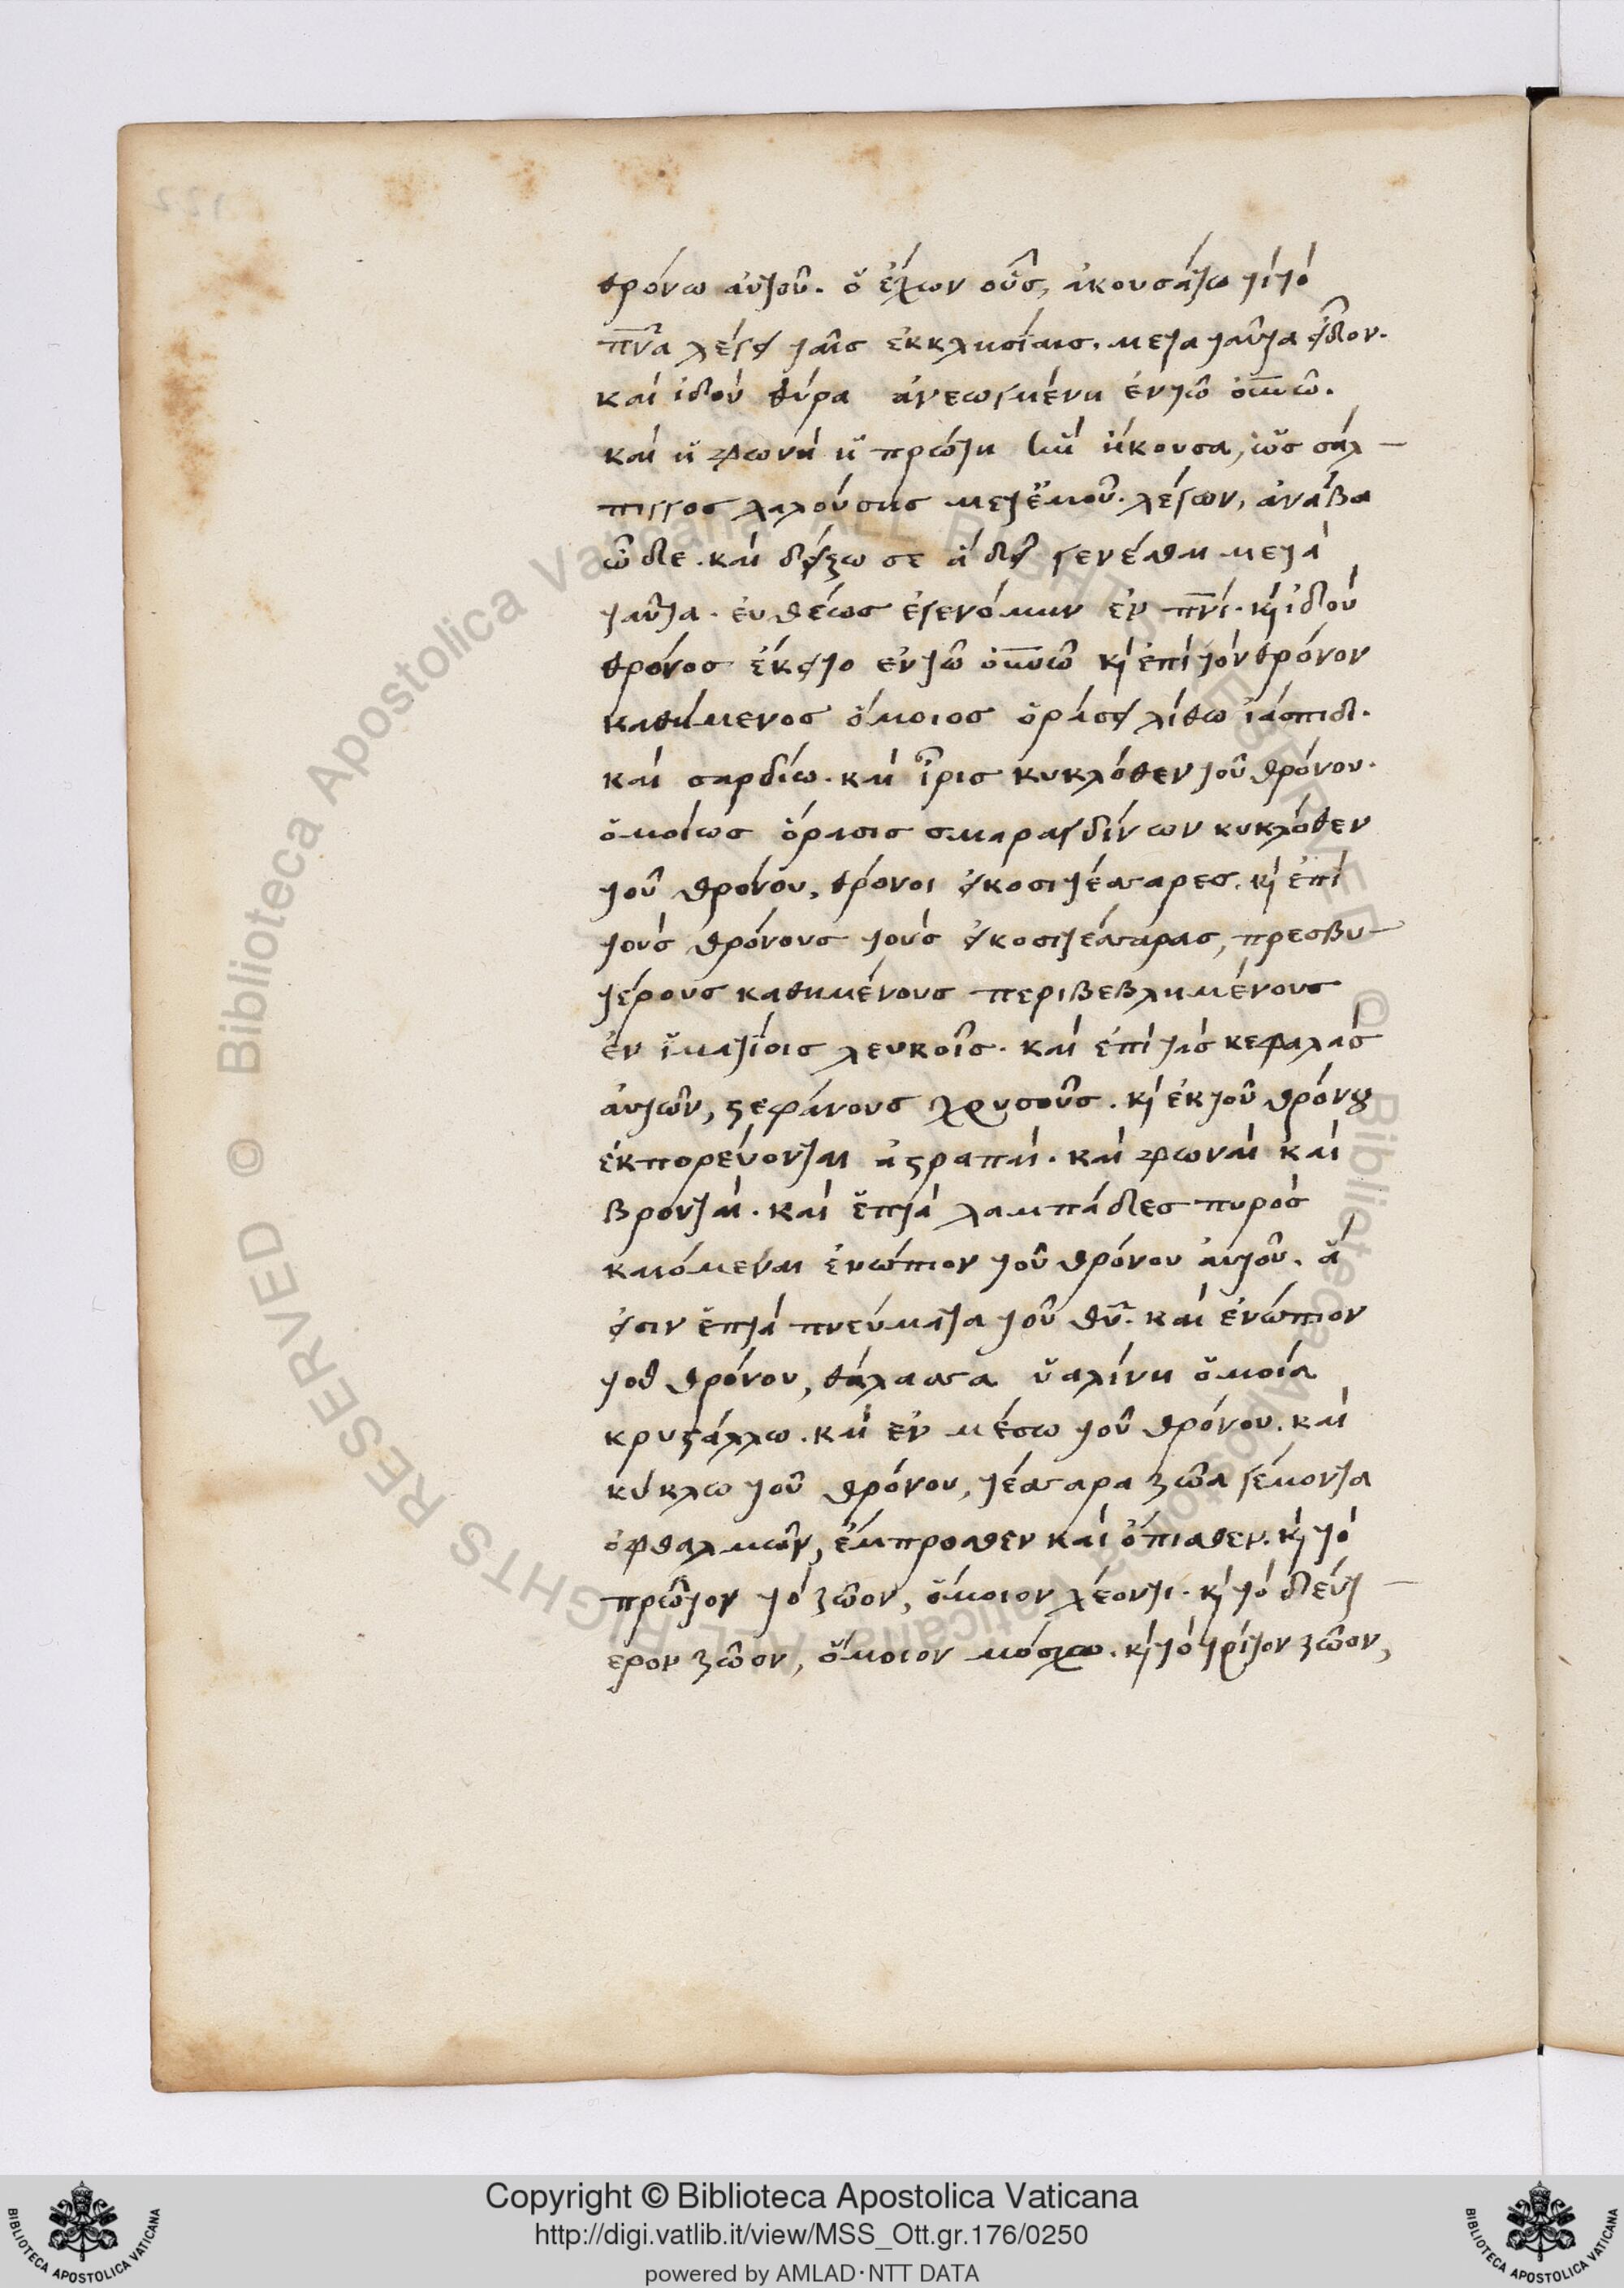 θρόνω αὐτοῦ. ὁ ἔχων οὖς, ἀκουσάτω τί τὸ
πν̅α λέγει ταῖς ἐκκλησίαις. μετα ταῦτα εἶδον.
καὶ ἰδοὺ θύρα ἀνεωγμένη ἐν τῶ οὐν̅ῶ.
καὶ ἡ φωνὴ ἡ πρώτη ἣν ἤκουσα, ὡς σάλ–
πιγγος λαλούσης μετ ἐμοῦ. λέγων, ἀνάβα
ὧδε. καὶ δείξω σε ἃ δεῖ γενέσθαι μετὰ
ταῦτα. εὐθέως ἐγενόμην ἐν πν̅ι. κ̀ ἰδοὺ
θρόνος ἔκειτο ἐν τῶ οὐν̅ῶ κ̀ ἐπὶ τὸν θρόνον
καθήμενος ὅμοιος ὁράσει λίθω ἰάσπιδι.
καὶ σαρδίω. καὶ ἶρις κυκλόθεν τοῦ θρόνου.
ὁμοίως ὅρασις σμαραγδίνων κυκλόθεν
τοῦ θρόνου, θρόνοι εἰκοσιτέσσαρες. κ̀ ἐπὶ
τοὺς θρόνους τοὺς εἰκοσιτέσσαρας, πρεσβυ–
τέρους καθημένους περιβεβλημένους
ἐν ἱματίοις λευκοῖς. καὶ ἐπὶ τὰς κεφαλὰς
αὐτῶν, στεφάνους χρυσοῦς. κ̀ ἐκ τοῦ θρόνου
ἐκπορεύονται ἀστραπαὶ. καὶ φωναὶ καὶ
βρονταὶ. καὶ ἑπτὰ λαμπάδες πυρὸς
καιόμεναι ἐνώπιον τοῦ θρόνου αὐτοῦ, ἅ
εἰσιν ἑπτὰ πνεύματα τοῦ θῦ. καὶ ἐνώπιον
τοῦ θρόνου, θάλασσα ὑαλίνη ὁμοία
κρυστάλλω. καὶ ἐν μέσω τοῦ θρόνου. καὶ
κύκλω τοῦ θρόνου, τέσσαρα ζῶα γέμοντα
ὀφθαλμῶν, ἔμπροσθεν καὶ ὄπισθεν. κ̀ τὸ
πρῶτον τὸ ζῶον, ὅμοιον λέοντι. κ̀ τὸ δεύτ–
ερον ζῶον, ὅμοιον μόσχω. κ̀ τὸ τρίτον ζῶον,
Copyright © Biblioteca Apostolica Vaticana
http://digi.vatlib.it/view/MSS_Ott.gr.176/0250
powered by AMLAD·NTT DATA